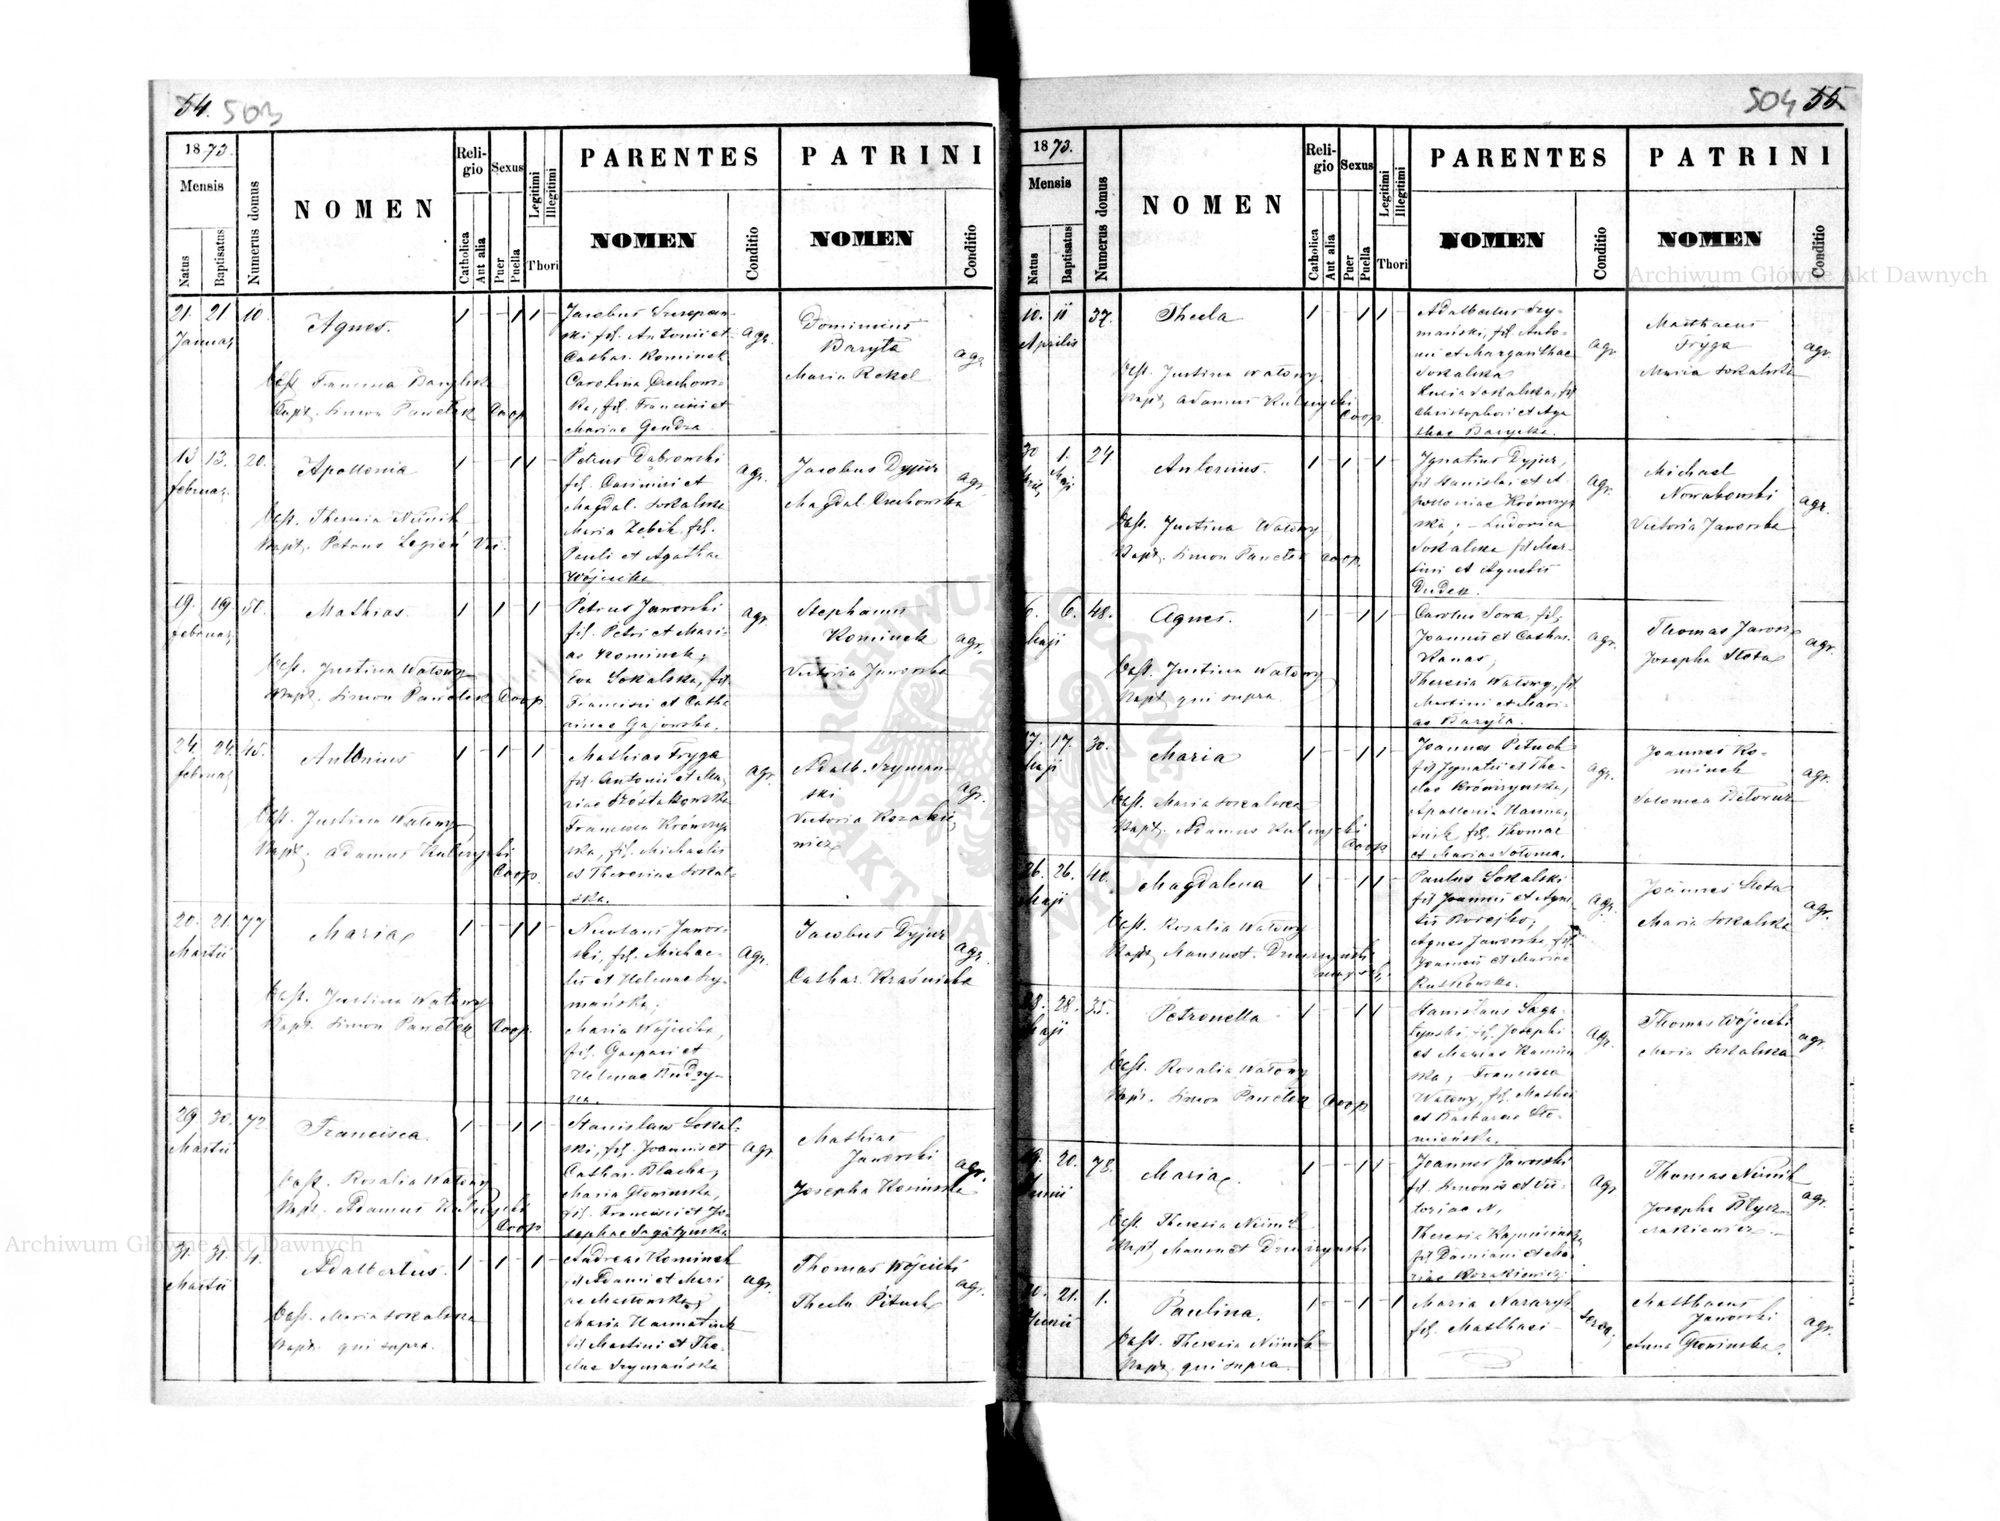 54. 503
1873.
Mensis
Natus
Baptisatus
Numerus domus
NOMEN
Religio
Catholica
Aut alia
Sexus
Puer
Puella
Legitimi
Illegitimi
Thori
PARENTES
NOMEN
Conditio
PATRINI
NOMEN
Conditio
21. 21 10.
Januar,
Agnes.
Obst. Francisca
Bapt. Simon Pawełek Coop
ski fil. Antonii et
Cathar. Kominek
Carolina Orechows-
ka, fil. Francisci et
Mariae Gendza.
agr.
Baryła
Maria Rekel
agr.
13 13. 20.
februar,
Apollonia
Obst. Theresia
Bapt. Petrus Legień
Petrus Dąbrowski
fil. Casimiri et
Magdal. Sokalska
Maria Zebik, fil.
Pauli et Agathae
Wójcicka
agr.
Jacobus Dyjur
Magdal. Orechowska
agr.
19. 19 50.
februar,
Mathias.
Obst. Justina Watowy
Bapt. Simon Pawełek Coop.
Petrus Jaworski
fil. Petri et Mari-
ae Kominek;
Eva Sokalska, fil.
Francisci et Catha
rinae Gajowska.
agr.
Stephanus
Kominek
Victoria Jaworska
agr.
24. 24. 45.
februar,
Antonius
Obst. Justina Watowy
Bapt. Adamus Kulczycki
Coop.
Mathias Fryga
fil. Antonii et Ma-
riae Szóstakowska
Francisca Krówczyń
ska, fil. Michaelis
et Theresiae Sokal-
ska.
agr.
Adalb. Szyman-
ski
Victoria Kozakie
wicz
agr.
20. 21. 77
Martii
Maria
Obst. Justina Watowy
Bapt. Simon Pawełek Coop.
Nicolaus Jawor-
ski, fil. Michae-
lis et Helenae Szy-
mańska;
Maria Wójcicka,
fil. Gaspari et
Helenae
agr.
Jacobus Dyjur
Cathar. Kraśnicka
agr.
29 30. 72
Martii
Francisca.
Obst. Rosalia Watowy
Bapt. Adamus Kulczycki
Coop.
Stanislaw Sokal-
ski, fil. Joannis et
Cathar. Blacha;
Maria Głowinska,
fil. Francisci et Jo-
sephae Sagatynska
agr.
Mathias
Jaworski
Josepha Kosinska
agr.
31. 31. 4.
Martii
Adalbertus.
Obst. Maria Sokalska
Bapt. qui supra.
Andreas Kominek
fil. Adami et Mari
ae
Maria Harmatiuk
fil. Martini et The-
clae Szymańska
agr.
Thomas Wójcicki
Thecla Pituch
agr.
504 55
1873.
Mensis
Natus
Baptisatus
Numerus domus
NOMEN
Religio
Catholica
Aut alia
Sexus
Puer
Puella
Legitimi
Illegitimi
Thori
PARENTES
NOMEN
Conditio
PATRINI
NOMEN
Conditio
10. 11 37.
Aprilis
Thecla
Obst. Justina Watowy
Bapt. Adamus Kulczycki
Coop.
Adalbertus Szy-
mański, fil. Anto-
nii et Margarithae
Sokalska
Lucia Sokalska, fil
Christophori et Aga
thae Barycka.
agr.
Matthaeus
Fryga
Maria Sokalska
agr.
30 1. 24
Maji
Antonius.
Obst. Justina Watowy
Bapt. Simon Pawełek Coop.
Ignatius Dyjur,
fil Stanislai et A
polloniae Krówczyń
ska; – Ludovica
Sokalska fil Mar-
tini et Agnetis
Dudek.
agr.
Michael
Nowakowski
Victoria Jaworska
agr.
6. 6. 48.
Maji
Agnes.
Obst. Justina Watowy
Bapt. qui supra.
Carolus Sowa, fil.
Joannis et Cathar.
Kanas;
Theresia Watowy, fil.
Martini et Mari-
ae Baryła.
agr.
Thomas Jarosz
Josepha Słota
agr.
17. 17. 30.
Maji
Maria
Obst. Maria Sokalska
Bapt. Adamus Kulczycki
Coop
Joannes Pituch
fil Ignatii et The-
clae Krówczynska,
Apollonia Harma-
tiuk, fil. Thomae
et Mariae Sołoma.
agr.
Joannes Ko-
minek
Salomea
agr.
26. 26. 40.
Maji
Magdalena
Obst. Rosalia Watowy
Bapt. Mansvet.
Paulus Sokalski
fil Joannis et Agne
tis Borejko;
Agnes Jaworska, fil.
Joannis et Mariae
Rutkowska.
agr.
Joannes Słota
Maria Sokalska
agr.
28. 28. 35.
Maji
Petronella
Obst. Rosalia Watowy
Bapt. Simon Pawełek Coop
Stanislaus Saga-
tynski, fil. Josephi
et Mariae Kamin
ska; – Francisca
Watowy, fil. Mathei
et Barbarae Sło-
mieńska.
agr.
Thomas Wójcicki
Maria Sokalska
agr.
19. 20. 78.
Junii
Maria
Obst. Theresia
Bapt. Mansvet
Joannes Jaworski
fil. Simonis et Vic-
toriae N,
Theresia
fil Damiani et Ma-
riae Kozakiewicz
agr
Thomas
Josepha
agr.
20. 21. 1.
Junii
Paulina.
Obst. Theresia
Bapt. qui supra.
Maria Nazaryk
fil. Matthaei –
serva,
Matthaeus
Jaworski
Anna Głowinska.
agr.
Archiwum Główne Akt Dawnych
Archiwum Główne Akt Dawnych
ARCHIWUM GŁÓWNE AKT DAWNYCH